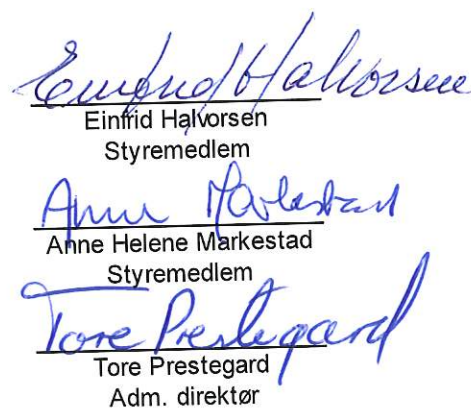 Einfrid Halvorsen
Einfrid Halvorsen
Styremedlem
Anne Markestad
Anne Helene Markestad
Styremedlem
Tore Prestegard
Tore Prestegard
Adm. direktør